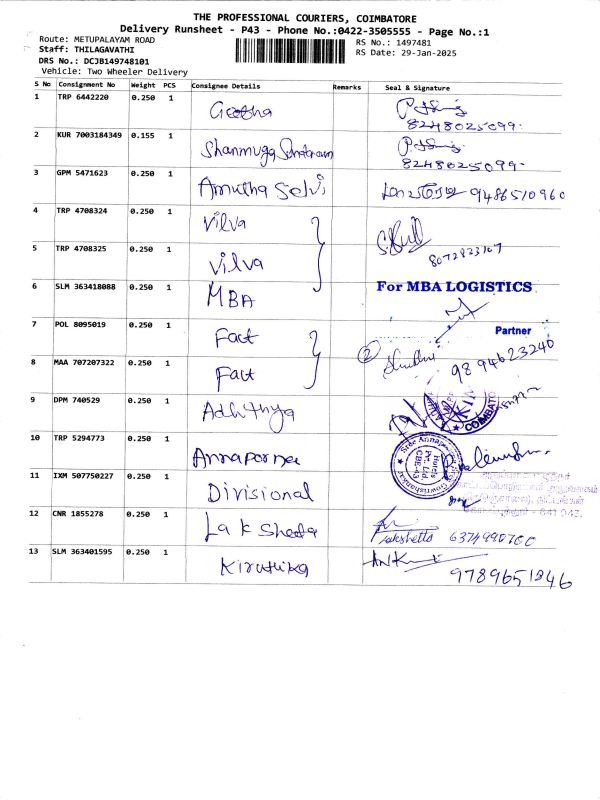 THE PROFESSIONAL COURIERS, COIMBATORE
Delivery Runsheet - P43 - Phone No.:0422-3505555 - Page No.:1
Route: METUPALAYAM ROAD
Staff: THILAGAVATHI
DRS No.: DCJB149748101
Vehicle: Two Wheeler Delivery
RS No.: 1497481
RS Date: 29-Jan-2025
S No Consignment No Weight PCS Consignee Details Remarks Seal & Signature
1 TRP 6442220 0.250 1 Geetha
8248025099
2 KUR 7003184349 0.155 1 Shanmuga
8248025099
3 GPM 5471623 0.250 1 Amutha Selvi 9486510960
4 TRP 4708324 0.250 1 Vilva
5 TRP 4708325 0.250 1 Vilva
6 SLM 363418088 0.250 1 MBA For MBA LOGISTICS
Partner
7 POL 8095019 0.250 1 Fact
2 9894623240
8 MAA 707207322 0.250 1 Fact
9 DPM 740529 0.250 1 Adhithya
10 TRP 5294773 0.250 1 Annaporna
11 IXM 507750227 0.250 1 Divisional
641 043.
12 CNR 1855278 0.250 1 Laksheta
6374990760
13 SLM 363401595 0.250 1 Kiruthika
9789651346